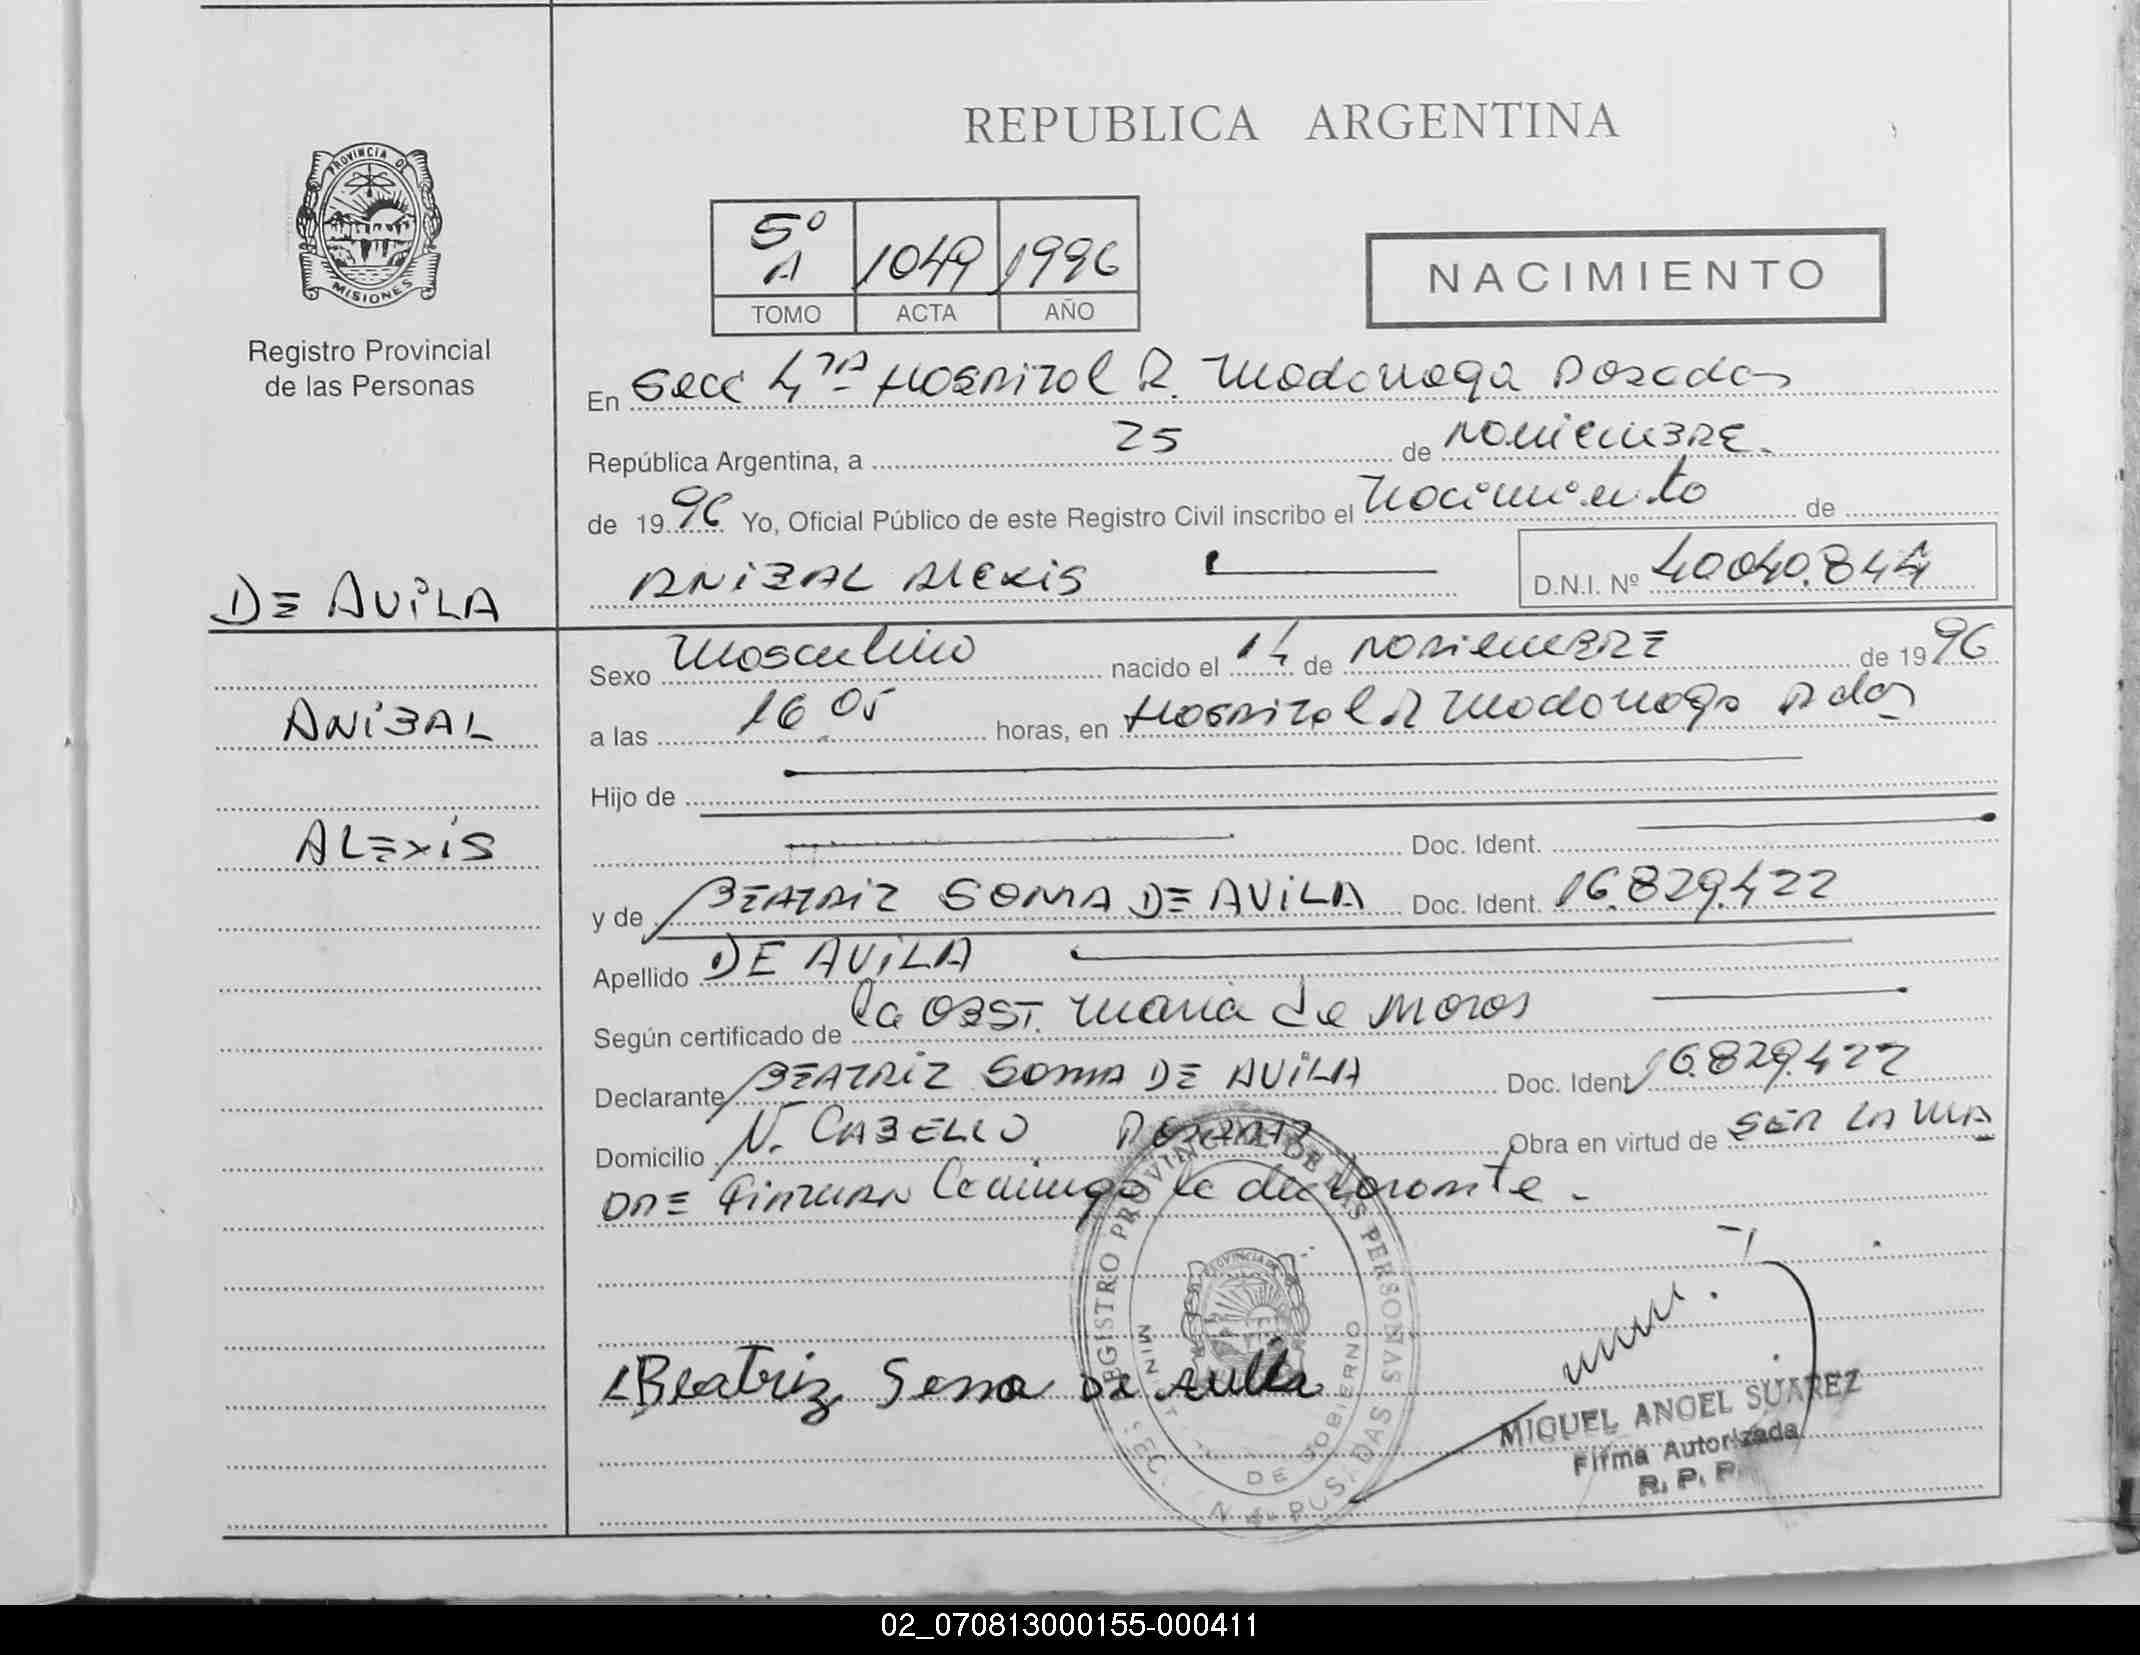 REPUBLICA ARGENTINA
PROVINCIA DE
MISIONES
Registro Provincial
de las Personas
5º
A
1049
1996
TOMO
ACTA
AÑO
NACIMIENTO
En Secc 4ta Hospital R. Madariaga Posadas
República Argentina, a 25 de NOVIEMBRE.
de 1996 Yo, Oficial Público de este Registro Civil inscribo el Nacimiento de
ANIBAL ALEXIS
D.N.I. Nº 40040.844
DE AVILA
ANIBAL
ALEXIS
Sexo Masculino nacido el 14 de NOVIEMBRE de 1996
a las 16 05 horas, en Hospital R Madariaga Pdas
Hijo de
Doc. Ident.
y de BEATRIZ SONIA DE AVILA Doc. Ident. 16.829.422
Apellido DE AVILA
Según certificado de la OBST. Maria de Moros
Declarante BEATRIZ SONIA DE AVILA Doc. Ident 16.829.422
Domicilio N. CABELLO POSADAS Obra en virtud de SER LA MA
DRE FIRMAN Conmigo la declarante.
REGISTRO PROVINCIAL DE LAS PERSONAS
MINIST DE GOBIERNO
SEC. N 4 POSADAS
Beatriz Sonia De Avila
MIGUEL ANGEL SUAREZ
Firma Autorizada
R. P. P.
02_070813000155-000411